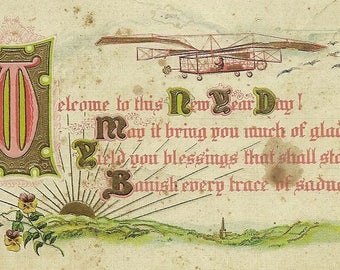 Welcome to this New Year Day!
May it bring you much of glad
Yield you blessings that shall sta
Banish every trace of sadn